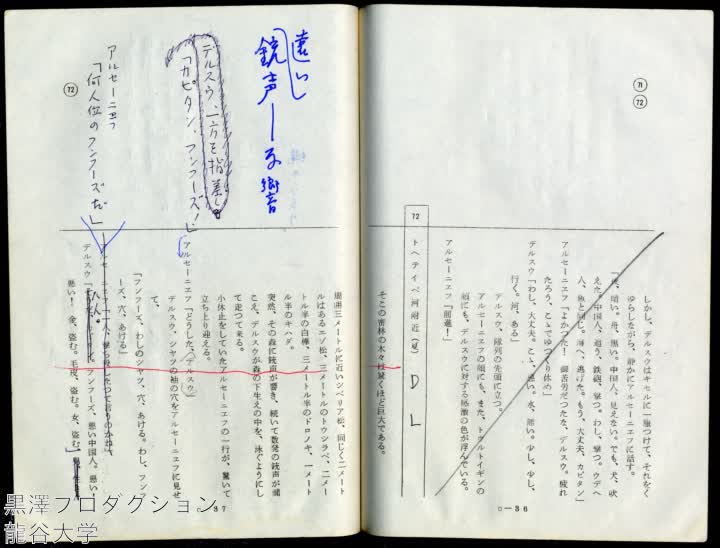 71
72
しかし、デルスウはキセルに一服つけて、それをく
ゆらしながら、静かにアルセーニエフに話す。
人、魚と同じ。海へ、逃げた。もう、大丈夫、カピタン」
アルセーニエフ「よかつた！ 御苦労だつたな、デルスウ。疲れ
たろう、こゝでゆつくり休め」
デルスウ「わし、大丈夫。こゝ、悪い。水、悪い。少し、少し、
行く。河、ある」
デルスウ、隊列の先頭に立つ。
アルセーニエフの顔にも、また、トゥルトイギンの
顔にも、デルスウに対する感激の色が浮んでいる。
アルセーニエフ「前進！」
72
トヘテイベ河附近（夏）
D L
そこの密林の木々は驚くほど巨大である。
○—36
遠い
銃声—の響音
デルスウ、一方を指差し
「カピタン、フンフーズ！」
アルセーニエフ
「何人位のフンフーズだ」
72
周囲三メートルに近いシベリア松、同じく二メート
ルはあるエゾ松、三メートルのトウシラベ、二メー
トル半の白樺、三メートル半のドロノキ、一メート
ル半のキハダ。
突然、その森に銃声が響き、続いて数発の銃声が聞
こえ、デルスウが森の下生えの中を、泳ぐようにし
て走つて来る。
小休止をしていたアルセーニエフの一行が、驚いて
立ち上り迎える。
アルセーニエフ「どうした、デルスウ」
デルスウ、シャツの袖の穴をアルセーニエフに見せ
て、
「フンフーズ、わしのシャツ、穴、あける。わし、フンフ
ーズ、穴、あける」
アルセーニエフ「一人、撃ち殺したつて言うのかね」
デルスウ「フンフーズ、悪い中国人。悪い
悪い！ 金、盗む。毛皮、盗む。女、盗む」
○—37
黒澤プロダクション
龍谷大学